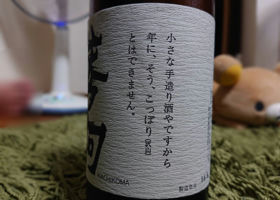 小さな手造り酒やですから
年に、そう、こっぽり(沢山)
とはできません。
KACHIKOMA
製造年月